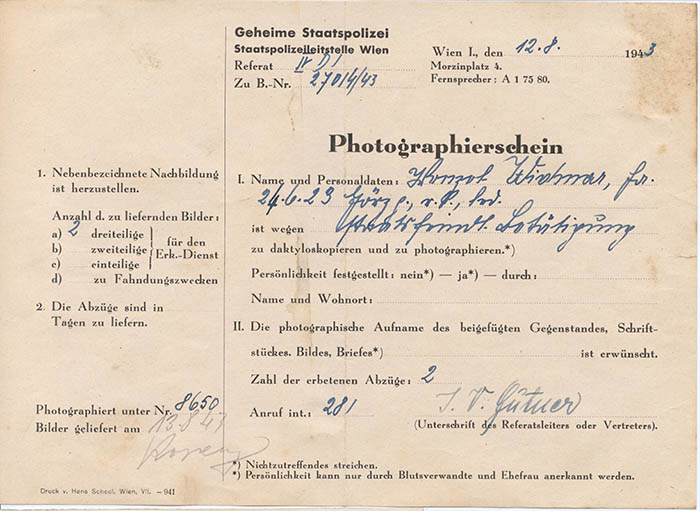 Geheime Staatspolizei
Staatspolizeileitstelle Wien
Referat IV D1
Zu B.-Nr. 27014/43
Wien I., den 12.8. 1943
Morzinplatz 4.
Fernsprecher: A 1 75 80.
Photographierschein
1. Nebenbezeichnete Nachbildung
ist herzustellen.
Anzahl d. zu liefernden Bilder:
a) 2 dreiteilige
b) zweiteilige
c) einteilige
für den
Erk.-Dienst
d) zu Fahndungszwecken
2. Die Abzüge sind in
Tagen zu liefern.
Photographiert unter Nr. 8650
Bilder geliefert am 13.8.43
I. Name und Personaldaten:
24.6.23 Görz g., r.k., led.
ist wegen staatsfeindl. Betätigung
zu daktyloskopieren und zu photographieren.*)
Persönlichkeit festgestellt: nein*) — ja*) — durch:
Name und Wohnort:
II. Die photographische Aufname des beigefügten Gegenstandes, Schrift-
stückes. Bildes, Briefes*) ist erwünscht.
Zahl der erbetenen Abzüge: 2
Anruf int.: 281
I. V.
(Unterschrift des Referatsleiters oder Vertreters).
*) Nichtzutreffendes streichen.
*) Persönlichkeit kann nur durch Blutsverwandte und Ehefrau anerkannt werden.
Druck v. Hans School, Wien, VII. — 941